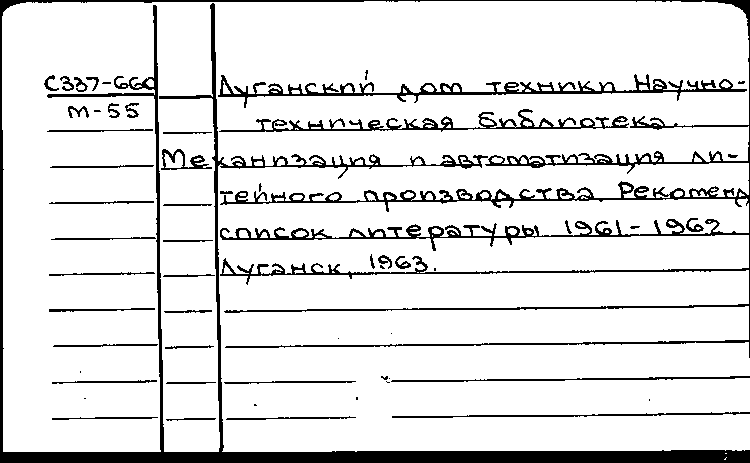 С337-660 Луганский дом техники Научно-
М-55 техническая библиотека.
Механизация и автоматизация ли-
тейного производства. Рекоменд
список литературы 1961-1962.
Луганск, 1963.